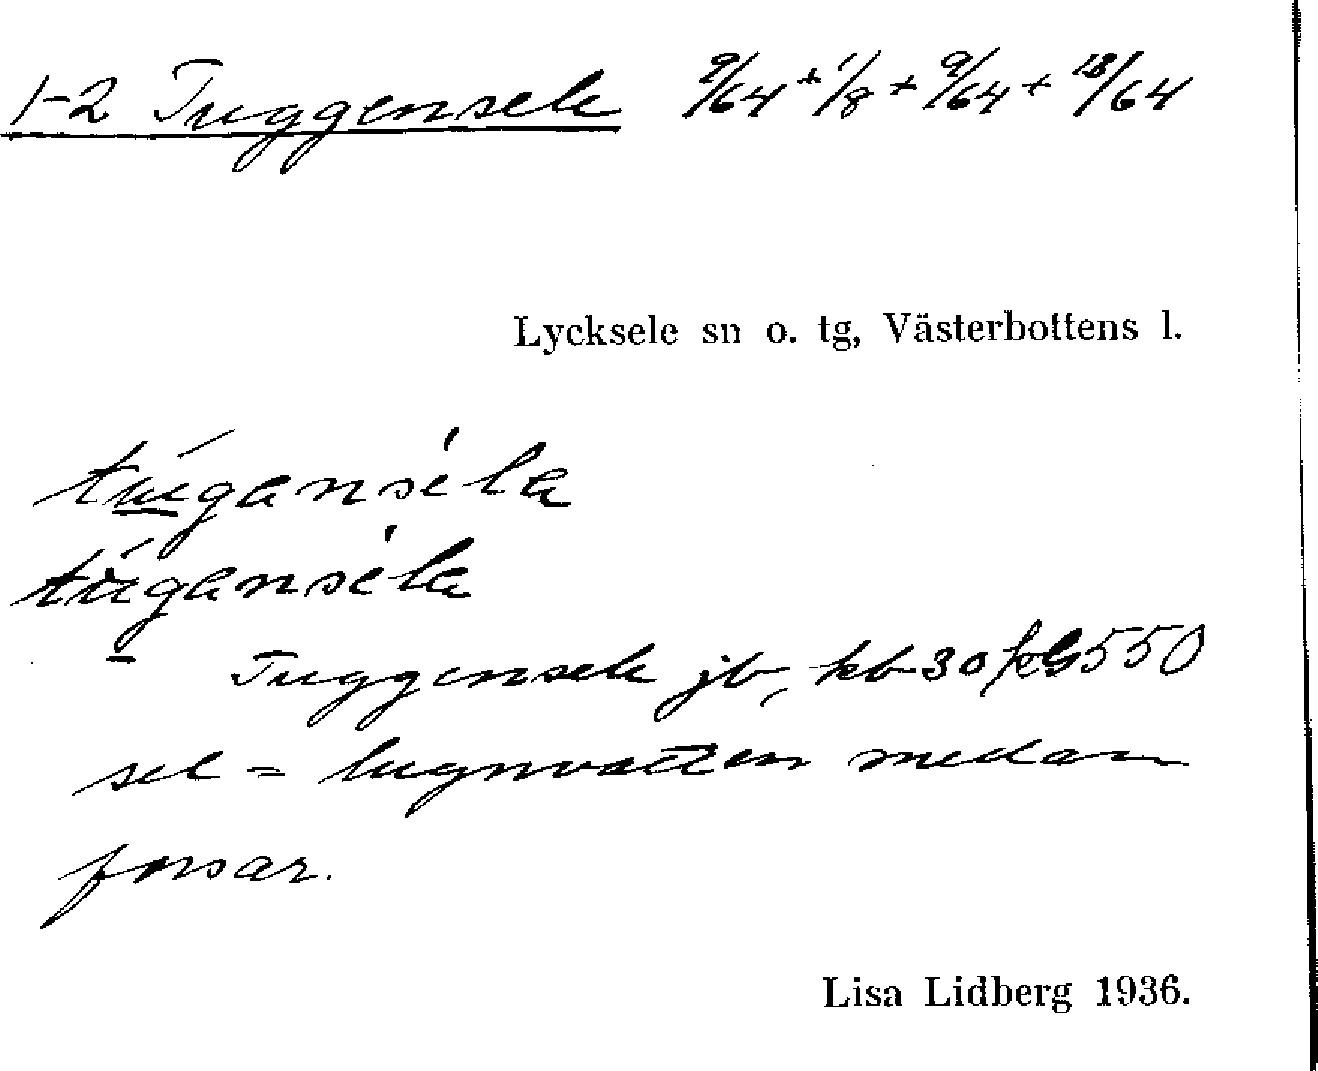 1-2 Tuggensele 9/64 + 1/8 + 9/64 + 18/64
Lycksele sn o. tg, Västerbottens l.
túgansela
túgansela
Tuggensele jb, kb 30 550
sel = lugnvatten medan
forsar.
Lisa Lidberg 1936.